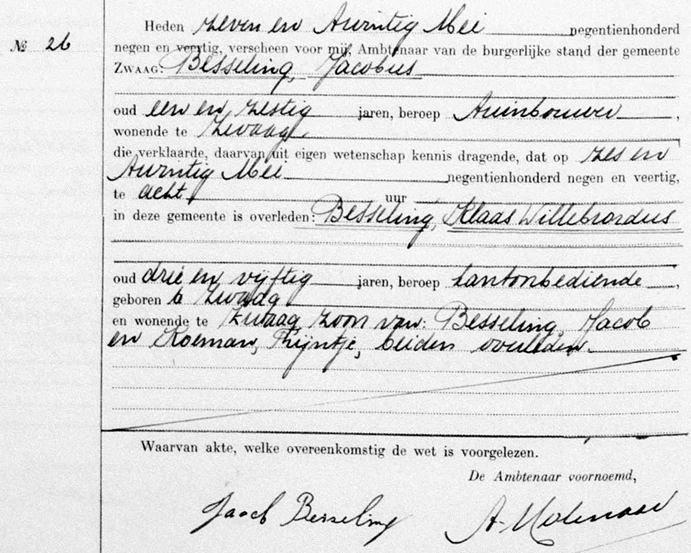 Heden zeven en twintig Mei negentienhonderd
№ 26
negen en veertig, verscheen voor mij, Ambtenaar van de burgerlijke stand der gemeente
ZWAAG: Besseling, Jacobus
oud een en zestig jaren, beroep tuinbouwer,
wonende te Zwaag
die verklaarde, daarvan uit eigen wetenschap kennis dragende, dat op zes en
twintig Mei negentienhonderd negen en veertig,
te acht uur
in deze gemeente is overleden: Besseling, Klaas Willebrordus
oud drie en vijftig jaren, beroep kantoorbediende,
geboren te Zwaag
en wonende te Zwaag zoon van: Besseling, Jacob
en Koeman, Trijntje, beiden overleden.
Waarvan akte, welke overeenkomstig de wet is voorgelezen.
De Ambtenaar voornoemd,
Jacob Besseling A. Molenaar